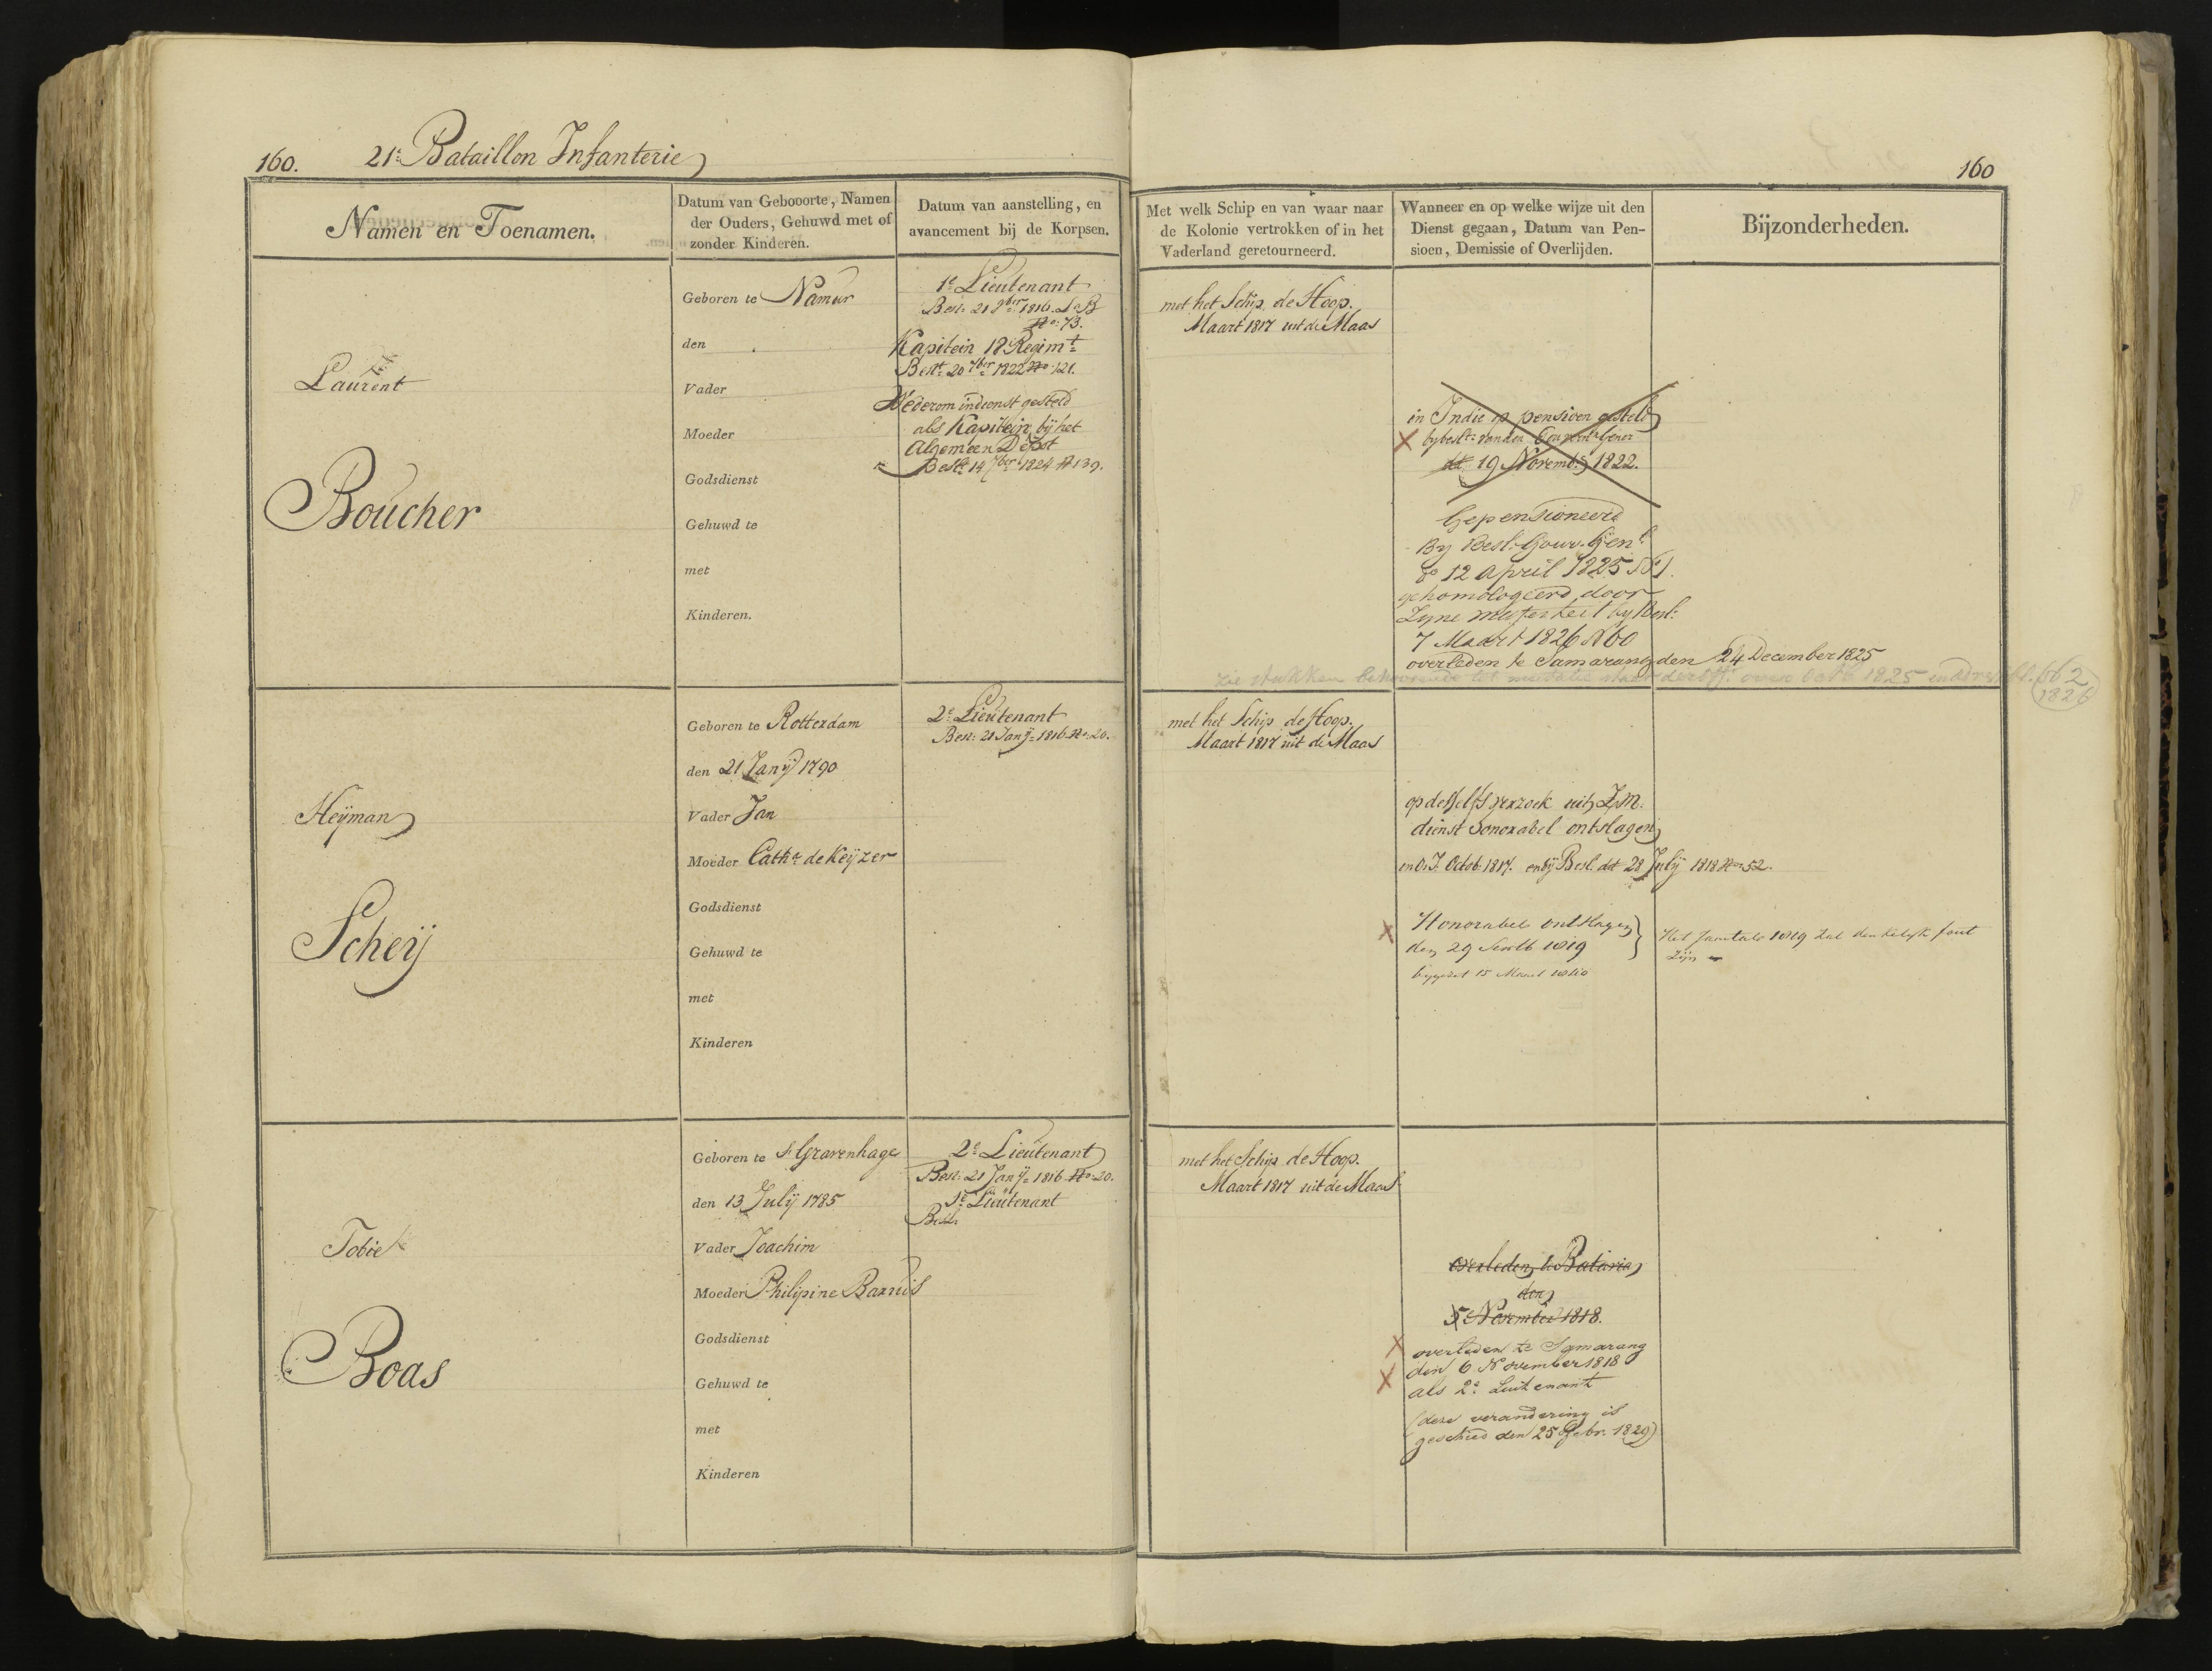 160.
21e Bataillon Infanterie
160
Namen en Toenamen.
Datum van Gebooorte, Namen
der Ouders, Gehuwd met of
zonder Kinderen.
Datum van aanstelling, en
avancement bij de Korpsen.
Met welk Schip en van waar naar
de Kolonie vertrokken of in het
Vaderland geretourneerd.
Wanneer en op welke wijze uit den
Dienst gegaan, Datum van Pen-
sioen, Demissie of Overlijden.
Bijzonderheden.
Laurent
Boucher
Geboren te Namur
den
Vader
Moeder
Godsdienst
Gehuwd te
met
Kinderen.
1e Lieutenant
Besl: 21 9ber 1816. La B
No. 73.
Kapitein 18e Regimt
Beslt 20 7ber 1822 No. 121.
Wederom indienst gesteld
als Kapitein bij het
Algemeen Depot
Beslt 14 7ber 1824 No 139.
met het Schip de Hoop.
Maart 1817 uit de Maas
in Indie op pensioen gesteld
bij beslt: van den Gouvern Gener
dd. 19 Novemb. 1822.
Gepensioneerd
By Besl: Gouv. Genl
do 12 April 1825 No 1.
gehomologeerd door
Zyne Majesteit by Besl:
7 Maart 1826 No 60
overleden te Samarang den 24 December 1825
zie stukken behoorende tot mutatie staat der off. over Octb 1825
562
1826
Heijman
Scheij
Geboren te Rotterdam
den 21 Janij 1790
Vader Jan
Moeder Cathe de Keijzer
Godsdienst
Gehuwd te
met
Kinderen
2e Lieutenant
Besl: 21 Janij 1816 No. 20.
met het Schip de Hoop.
Maart 1817 uit de Maas
op deszelfs verzoek uit Z.M.
dienst honorabel ontslagen
in O.I. Octob. 1817. en bij Besl. dd 28 Julij 1818 No 52.
Honorabel ontslagen
den 29 1819
15 Maart
Het jaartal 1819 zal denkelijk fout
zijn
Tobie
Boas
Geboren te s'Gravenhage
den 13 Julij 1785
Vader Joachim
Moeder Philipine Barnds
Godsdienst
Gehuwd te
met
Kinderen
2e Lieutenant
Besl: 21 Janij 1816 No. 20.
1e Lieutenant
Besl:
met het Schip de Hoop.
Maart 1817 uit de Maas
overleden te Batavia
den
5 November 1818.
overleden te Samarang
den 6 November 1818
als 2e Luitenant
(deze verandering is
geschied den 25 Febr. 1829)